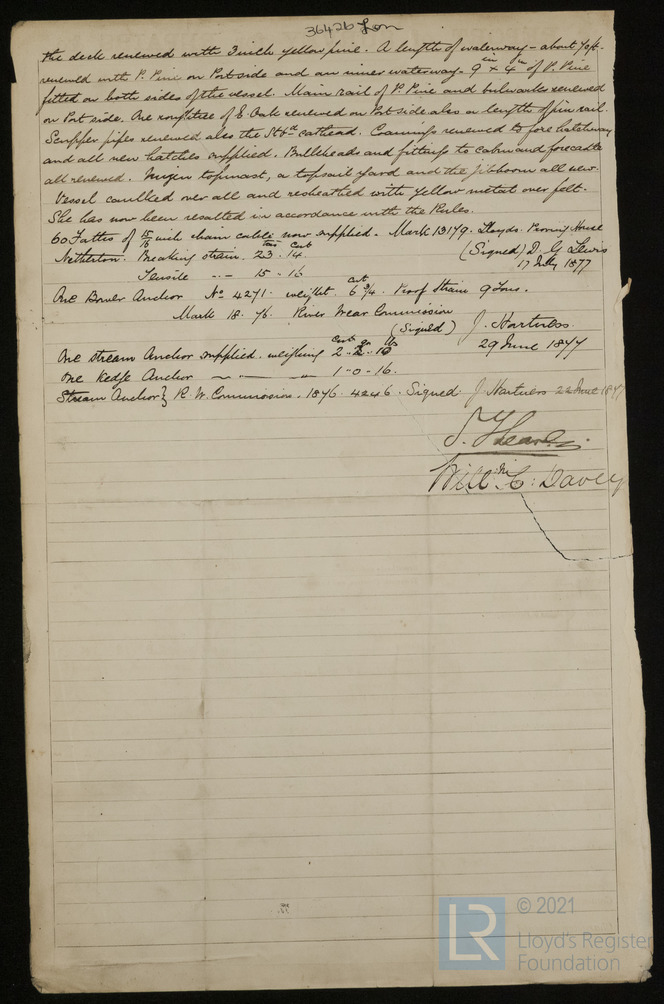 36426 Lon
the deck renewed with 3 inch yellow pine. A length of waterway - about 40ft -
renewed with P. Pine on Port side and an inner waterway 9in x 4in of P. Pine
fitted on both sides of the vessel. Main rail of P. Pine and bulwarks renewed
on Port side. One roughtree of E. Oak renewed on Port side also a length of pin rail.
Scupper pipes renewed also the Stbd cathead. Coamings renewed to fore hatchway
and all new hatches supplied. Bulkheads and fittings to cabin and forecastle
all renewed. Mizen topmast, a topsail yard and the jibboom all new.
Vessel caulked over all and resheathed with yellow metal over felt.
She has now been resalted in accordance with the Rules.
60 Faths of 15/16 inch chain cable now supplied. Mark 13179. Lloyds Proving House
Netherton. Breaking strain 23 tons 14 cwt (Signed) D. G. Lewis
Tensile -- - 15 - 16 17 July 1877
One Bower Anchor No 4271. weight 6 3/4 cwt. Proof Strain 9 Tons.
Mark 18. 76. River Wear Commission
(Signed) J. Hartness.
One stream Anchor supplied. weighing 2 - 2 - 10 cwt qr lbs 29 June 1877
One Kedge Anchor 1 - 0 - 16.
Stream Anchor } R. W. Commission. 1876. 4246. Signed. J. Hartness 22 June 1877
Willm. C. Davey
© 2021
LR
Lloyd's Register
Foundation